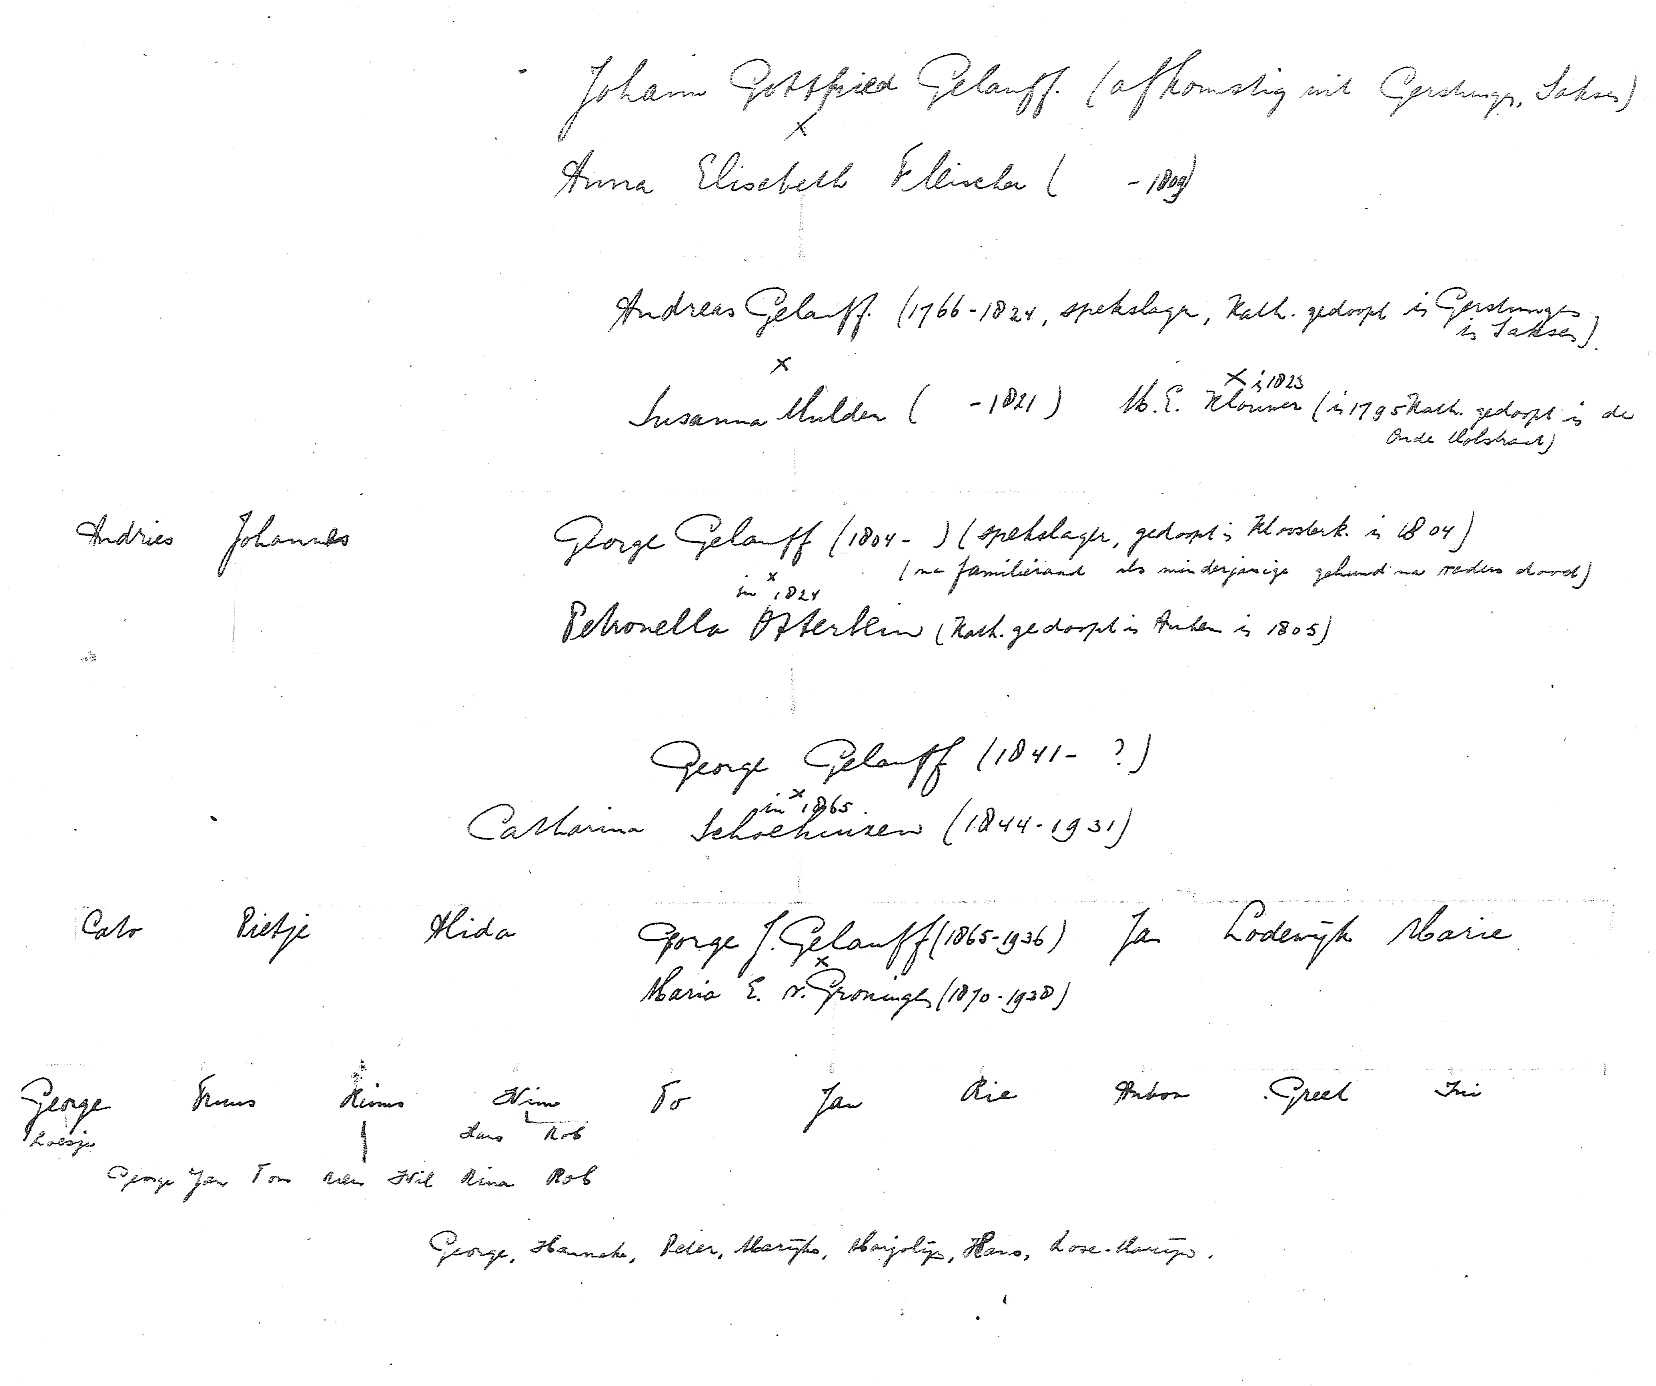 Johann Gottfried Gelauff. (afkomstig uit Gerstungen, Saksen)
x
Anna Elisabeth Fleischer ( -1809)
Andreas Gelauff. (1766-1824, spekslager, Kath. gedoopt in Gerstungen
in Saksen).
x
x in 1823
Susanna Mulder ( -1821) M.E. (in 1795 Kath. gedoopt in de
Oude Molstraat)
Andries Johannes George Gelauff (1804- ) (spekslager, gedoopt in Kloosterk. in 1804)
(na familieraad als minderjarige gehuwd na vaders dood)
x
in 1824
Petronella (Kath. gedoopt in in 1805)
George Gelauff (1841- ?)
x
in 1865.
Catharina (1844-1931)
Cato Pietje Alida George J. Gelauff (1865-1936) Jan Lodewijk Marie
x
Maria E. v. Groningen (1870-1938)
George Truus Rinus Wim To Jan Rie Anton Greet Ini
Loesje Hans Rob
George Jan Tom Wil Rina Rob
George, Hanneke, Peter, Marijke, Marjolijn, Hans, Lose-Marijn.